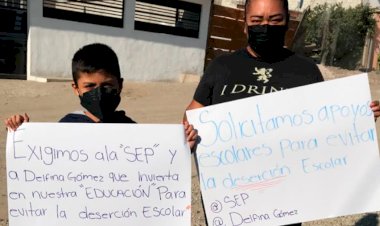 EXIGIMOS ala "SEP" Y
a Delfina Gómez que Invierta
en nuestra "EDUCACIÓN" Para
evitar la deserción ESColar
I DRIN
Solicitamos apoyos
escolares para evitar
la deserción Escolar
@ SEP
@ Delfina Gómez